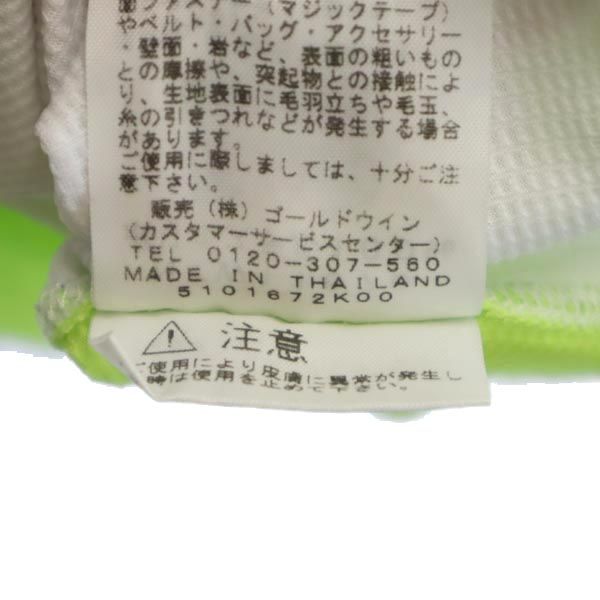 面ファスナー(マジックテープ)
やベルト・バッグ・アクセサリー
・壁面・岩など、表面の粗いもの
との摩擦や、突起物との接触によ
り、生地表面に毛羽立ちや毛玉、
糸の引きつれなどが発生する場合
があります。
ご使用に際しましては、十分ご注
意下さい。
販売(株)ゴールドウイン
(カスタマーサービスセンター)
TEL 0120-307-560
MADE IN THAILAND
5101672K00
注意
ご使用により皮膚に異常が発生し
時は使用を止めて下さい。